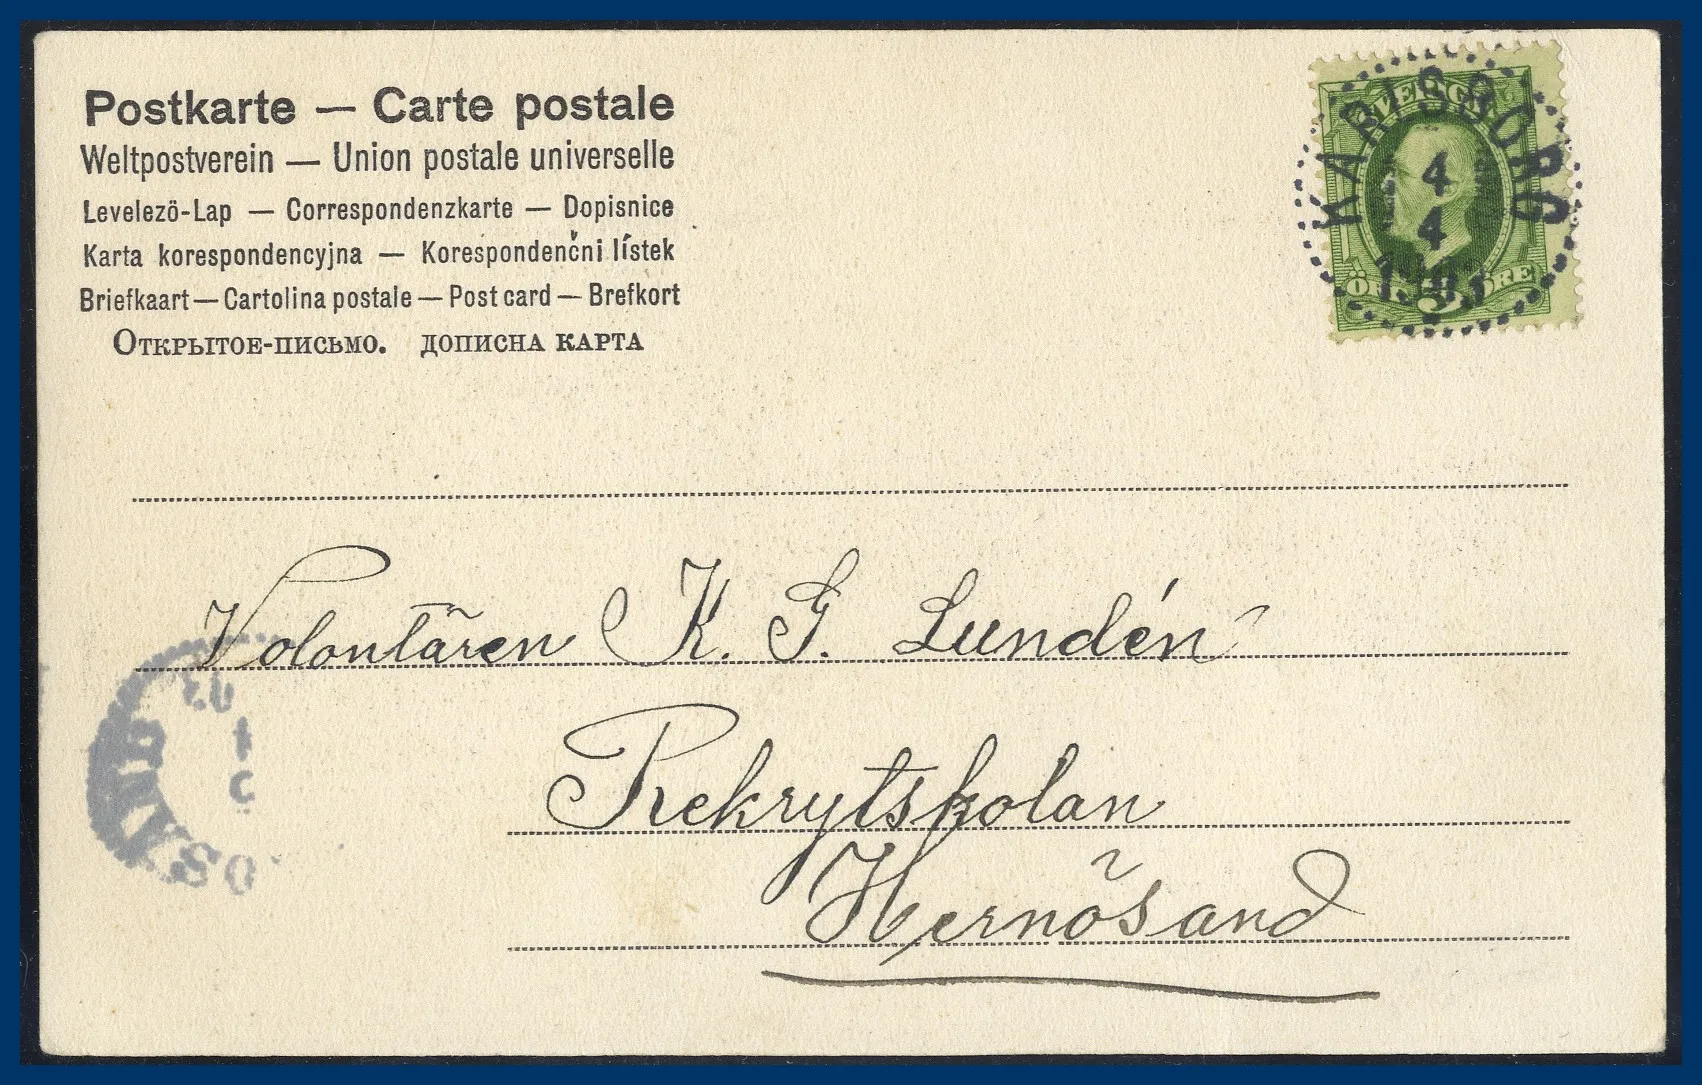 Postkarte — Carte postale
Weltpostverein — Union postale universelle
Levelező-Lap — Correspondenzkarte — Dopisnice
Karta korespondencyjna — Korespondenčni lístek
Briefkaart — Cartolina postale — Post card — Brefkort
Открытое-письмо. дописна карта
SVERIGE
KARLSBORG
4
4
ÖRE 5 ÖRE
Volontären K. G. Lundén
Rekrytskolan
Hernösand